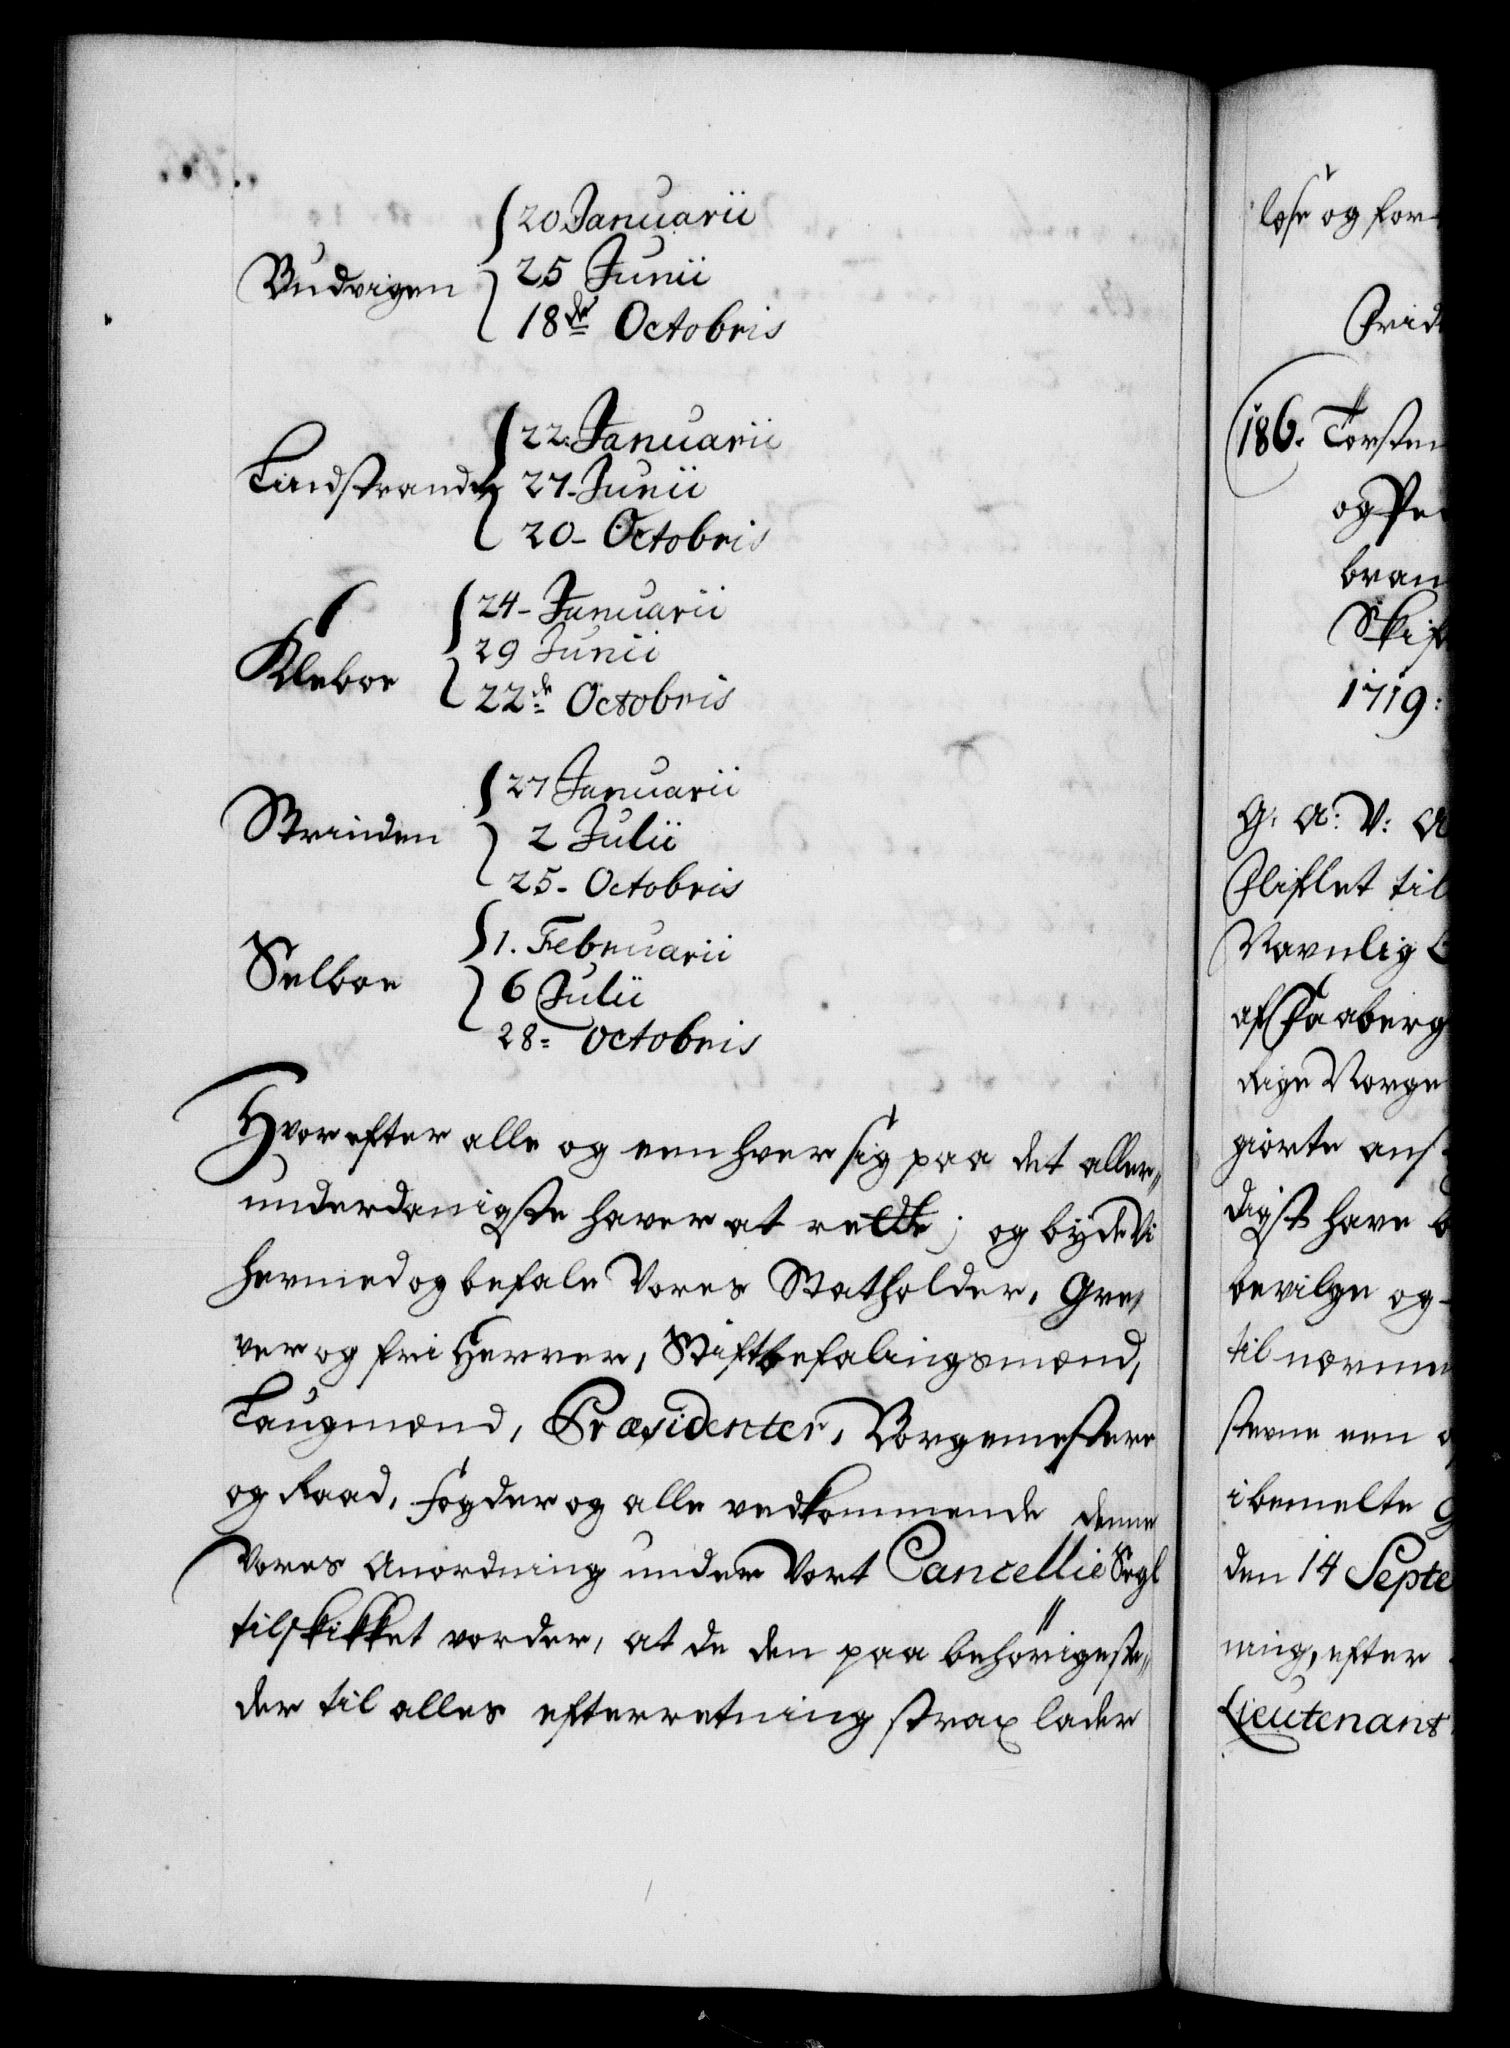 20 Januarii
Budvigen 25 Junii
18de Octobris
22. Januarii
Lindstrand 27. Junii
20- Octobris
24- Januarii
29 Junii
Kleboe
22de Octobris
27 Januarii
Strinden 2 Julii
25- Octobris
1. Februarii
Selboe 6 Julii
28- Octobris
Hvorefter alle og eenhver sig paa det aller„
underdanigste haver at rette; og byde Vi
hermed og befale Vores Statholder, Gre„
ver og fri Herrer, Stiftbefalingsmænd,
Laugmænd, Præsidenter, Borgemestere
og Raad, fogder og alle vedkommende denne
Vores Anordning under Vort Cancellie Segl
tilskikket vorder, at de den paa behörige ste„
der til alles efterretning strax lader
löse og for-
Frid
186. Torsten
og Pe
bran
Skif
1719:
G: A: V: A
Flislet til
Navnlig
af Faaberg
Rige Norge
giorte ans
digst have b
bevilge og-
til nærme
stevne een o
ibemelte G
den 14 Septe
ning, efter
Lieutenant